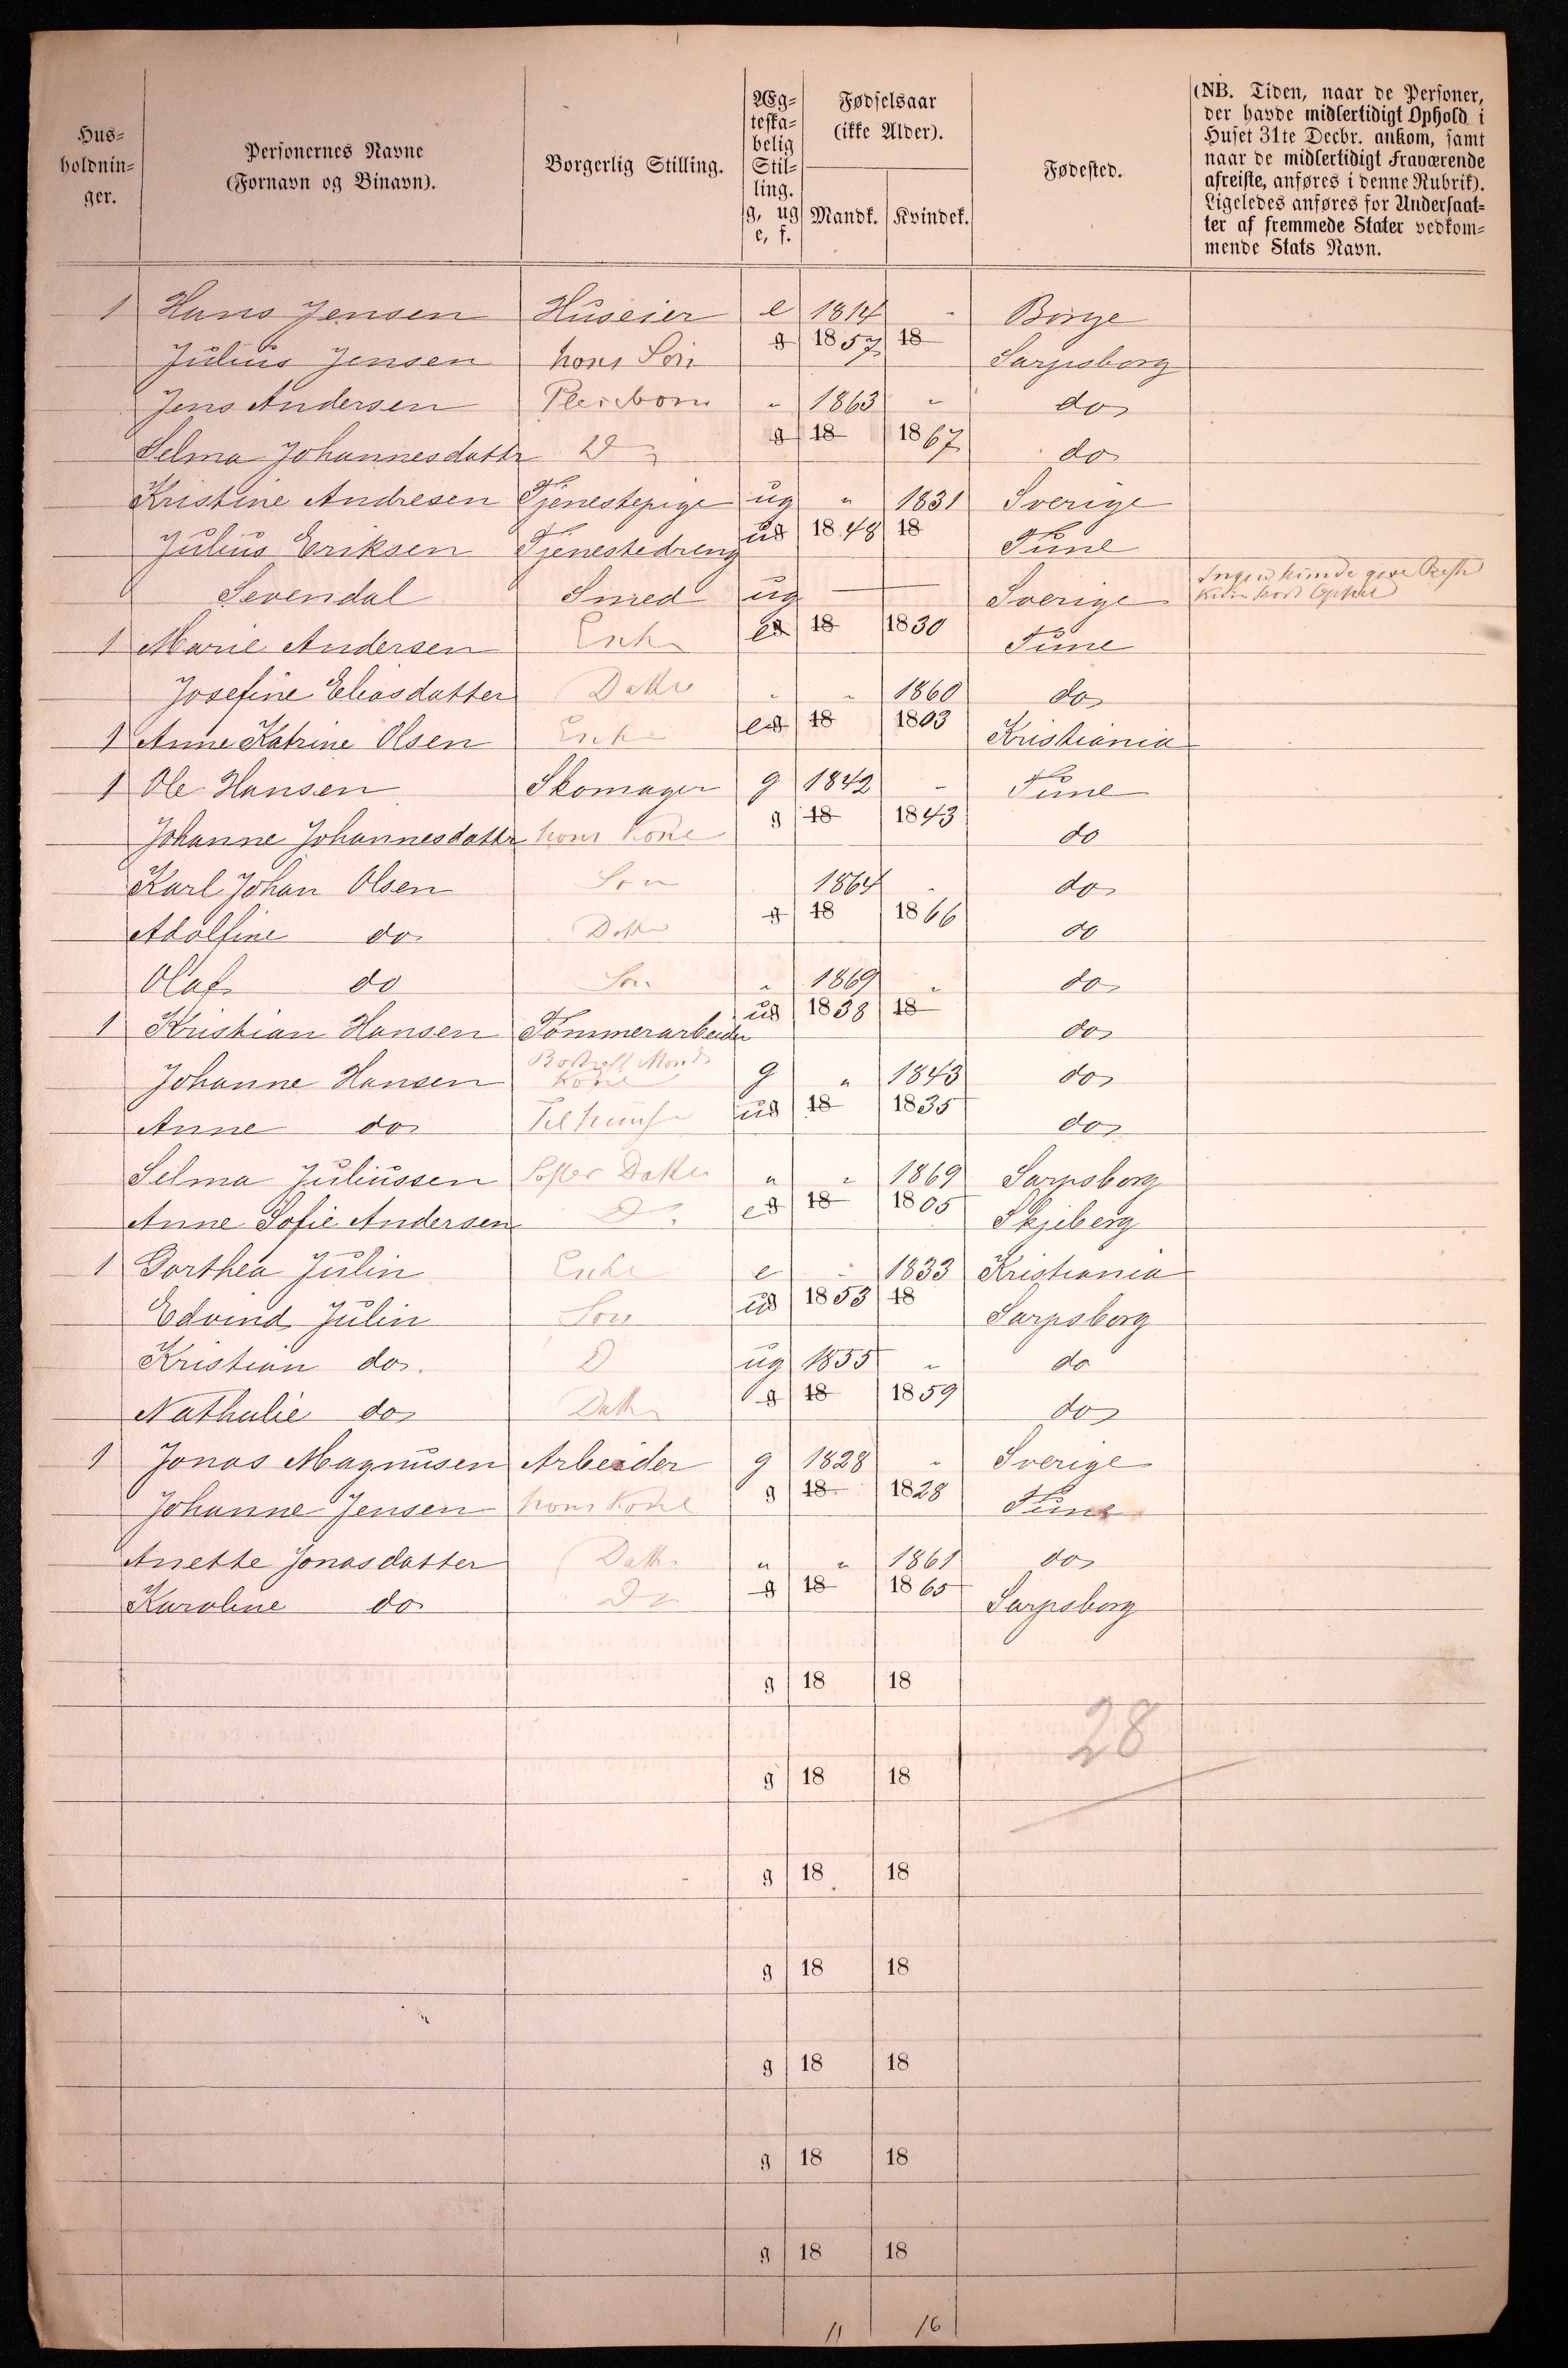 Hus=
holdnin=
ger.
Personernes Navne
(Fornavn og Binavn).
Borgerlig Stilling.
Æg=
teska=
belig
Stil=
ling.
g, ug
e, f.
Fødselsaar
(ikke Alder).
Mandk. Kvindek.
Fødested.
(NB. Tiden, naar de Personer,
der havde midlertidigt Ophold i
Huset 31te Decbr. ankom, samt
naar de midlertidigt Fraværende
afreiste, anføres i denne Rubrik).
Ligeledes anføres for Undersaat=
ter af fremmede Stater vedkom=
mende Stats Navn.
1 Hans Jensen Huseier e 1814 - Borge
Julius Jensen hans Søn g 1857 18 Sarpsborg
Jens Andersen Pleiebarn " 1863 " do
Selma Johannesdattr Do g 18 1867 do
Kristine Andresen Tjenestepige ug " 1831 Sverige
Julius Eriksen Tjenestedreng ug 1848 18 Tune
Sevendal Smed ug — Sverige Ingen kunde give
1 Marie Andersen Enke eg 18 1830 Tune
Josefine Eliasdatter Datter " " 1860 do
1 Anne Katrine Olsen Enke eg 18 1803 Kristiania
1 Ole Hansen Skomager g 1842 - Tune
Johanne Johannesdattr hans Kone g 18 1843 do
Karl Johan Olsen Søn 1864 - do
Adolfine do Datter g 18 1866 do
Olaf do Søn " 1869 " do
1 Kristian Hansen Tømmerarbeider ug 1838 18 do
Johanne Hansen Kone g " 1843 do
Anne do ug 18 1835 do
Selma Juliussen Datter " " 1869 Sarpsborg
Anne Sofie Andersen eg 18 1805 Skjeberg
1 Dorthea Julin Enke e - 1833 Kristiania
Edvind Julin Søn ug 1853 18 Sarpsborg
Kristian do. D ug 1855 " do
Nathalie do Datter g 18 1859 do
1 Jonas Magnusen Arbeider g 1828 " Sverige
Johanne Jensen hans Kone g 18 1828 Tune
Anette Jonasdatter Datter " " 1861 do
Karoline do Do g 18 1865 Sarpsborg
g 18 18
28
g 18 18
g 18 18
g 18 18
g 18 18
g 18 18
g 18 18
11 16